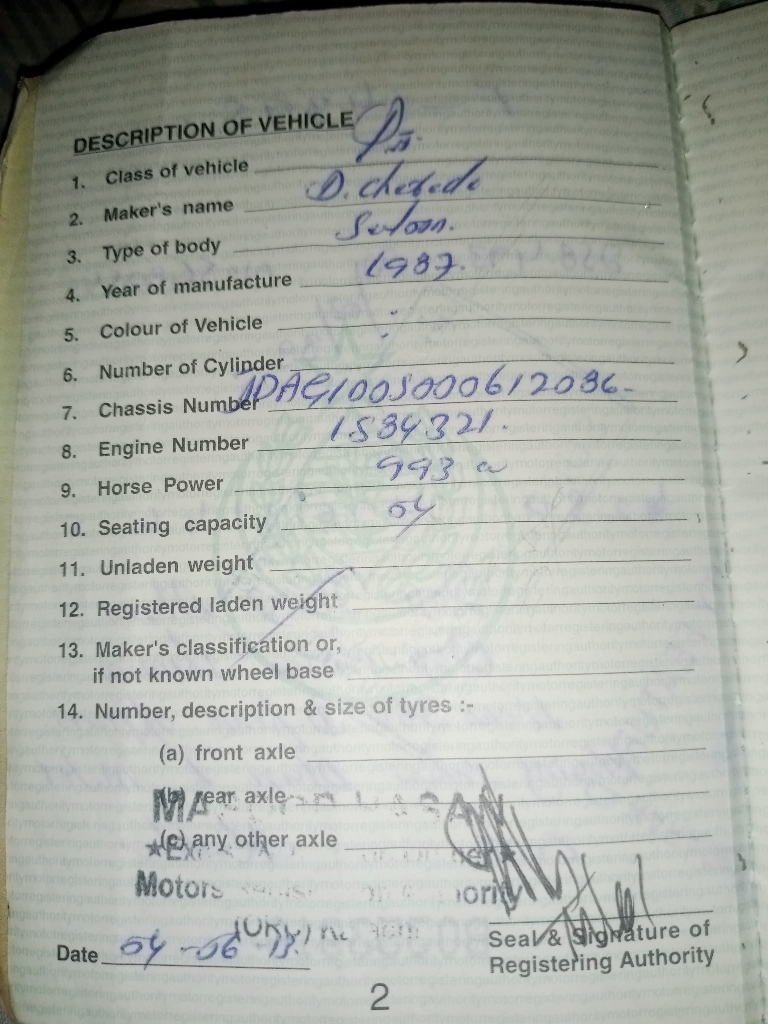 DESCRIPTION OF VEHICLE
1. Class of vehicle
2. Maker's name D.
3. Type of body
4. Year of manufacture 1987.
5. Colour of Vehicle
6. Number of Cylinder
7. Chassis Number
8. Engine Number 1534321.
9. Horse Power 993
10. Seating capacity 04
11. Unladen weight
12. Registered laden weight
13. Maker's classification or,
if not known wheel base
14. Number, description & size of tyres :-
(a) front axle
(b) rear axle
(c) any other axle
Motors
Date 04-06-13.
Seal & Signature of
Registering Authority
2